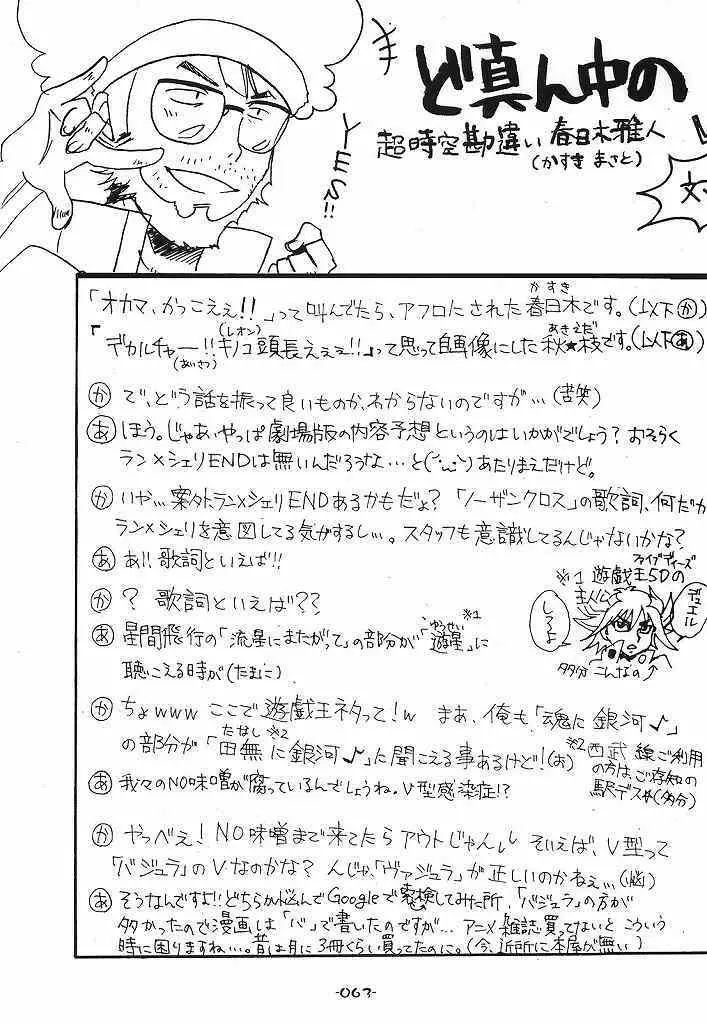 ど真ん中の
超時空勘違い 春日木雅人
(かすき まさと)
YES!!
「オカマ、かっこええ!!」って叫んでたら、アフロにされた春日木です。(以下か)
かすき
「デカルチャー!!キノコ頭長ええぇ!!」って思って自画像にした秋★枝です。(以下あ)
(あいさつ)
(レオン)
あきえだ
か で、どう話を振って良いものか、わからないのですが…(苦笑)
あ ほう。じゃあ、やっぱ劇場版の内容予想というのはいかがでしょう?おそらく
ラン×シェリENDは無いんだろうな…と(´・ω・`)あたりまえだけど。
か いや…案外トラン×シェリENDあるかもだよ?「ノーザンクロス」の歌詞、何だか
ラン×シェリを意図してる気がするし…。スタッフも意識してるんじゃないかな?
あ あ!!歌詞といえば!!
か ? 歌詞といえば??
あ 星間飛行の「流星にまたがって」の部分が「遊星」に
ゆうせい
※1
聴こえる時が(たまに)
※1 遊戯王5Dの
ファイブディーズ
主人公
デュエル
してろよ
多分こんなの
か ちょwww ここで遊戯王ネタって!w まあ、俺も「魂に銀河♪」
の部分が「田無に銀河♪」に聞こえる事あるけど!(お)
たなし ※2
※2 西武線ご利用
の方はご存知の
駅デス(多分)
あ 我々のNO味噌が腐っているんでしょうね。V型感染症!?
か やっべえ!NO味噌まで来てたらアウトじゃん そいえば、V型って
「バジュラ」のVなのかな?んじゃ、「ヴァジュラ」が正しいのかねぇ…(悩)
あ そうなんですよ!!どちらか悩んでGoogleで検索してみた所、「バジュラ」の方が
多かったので漫画は「バ」で書いたのですが…アニメ雑誌買ってないとこういう
時に困りますねぃ…。昔は月に3冊くらい買ってたのに。(今、近所に本屋が無い)
-063-